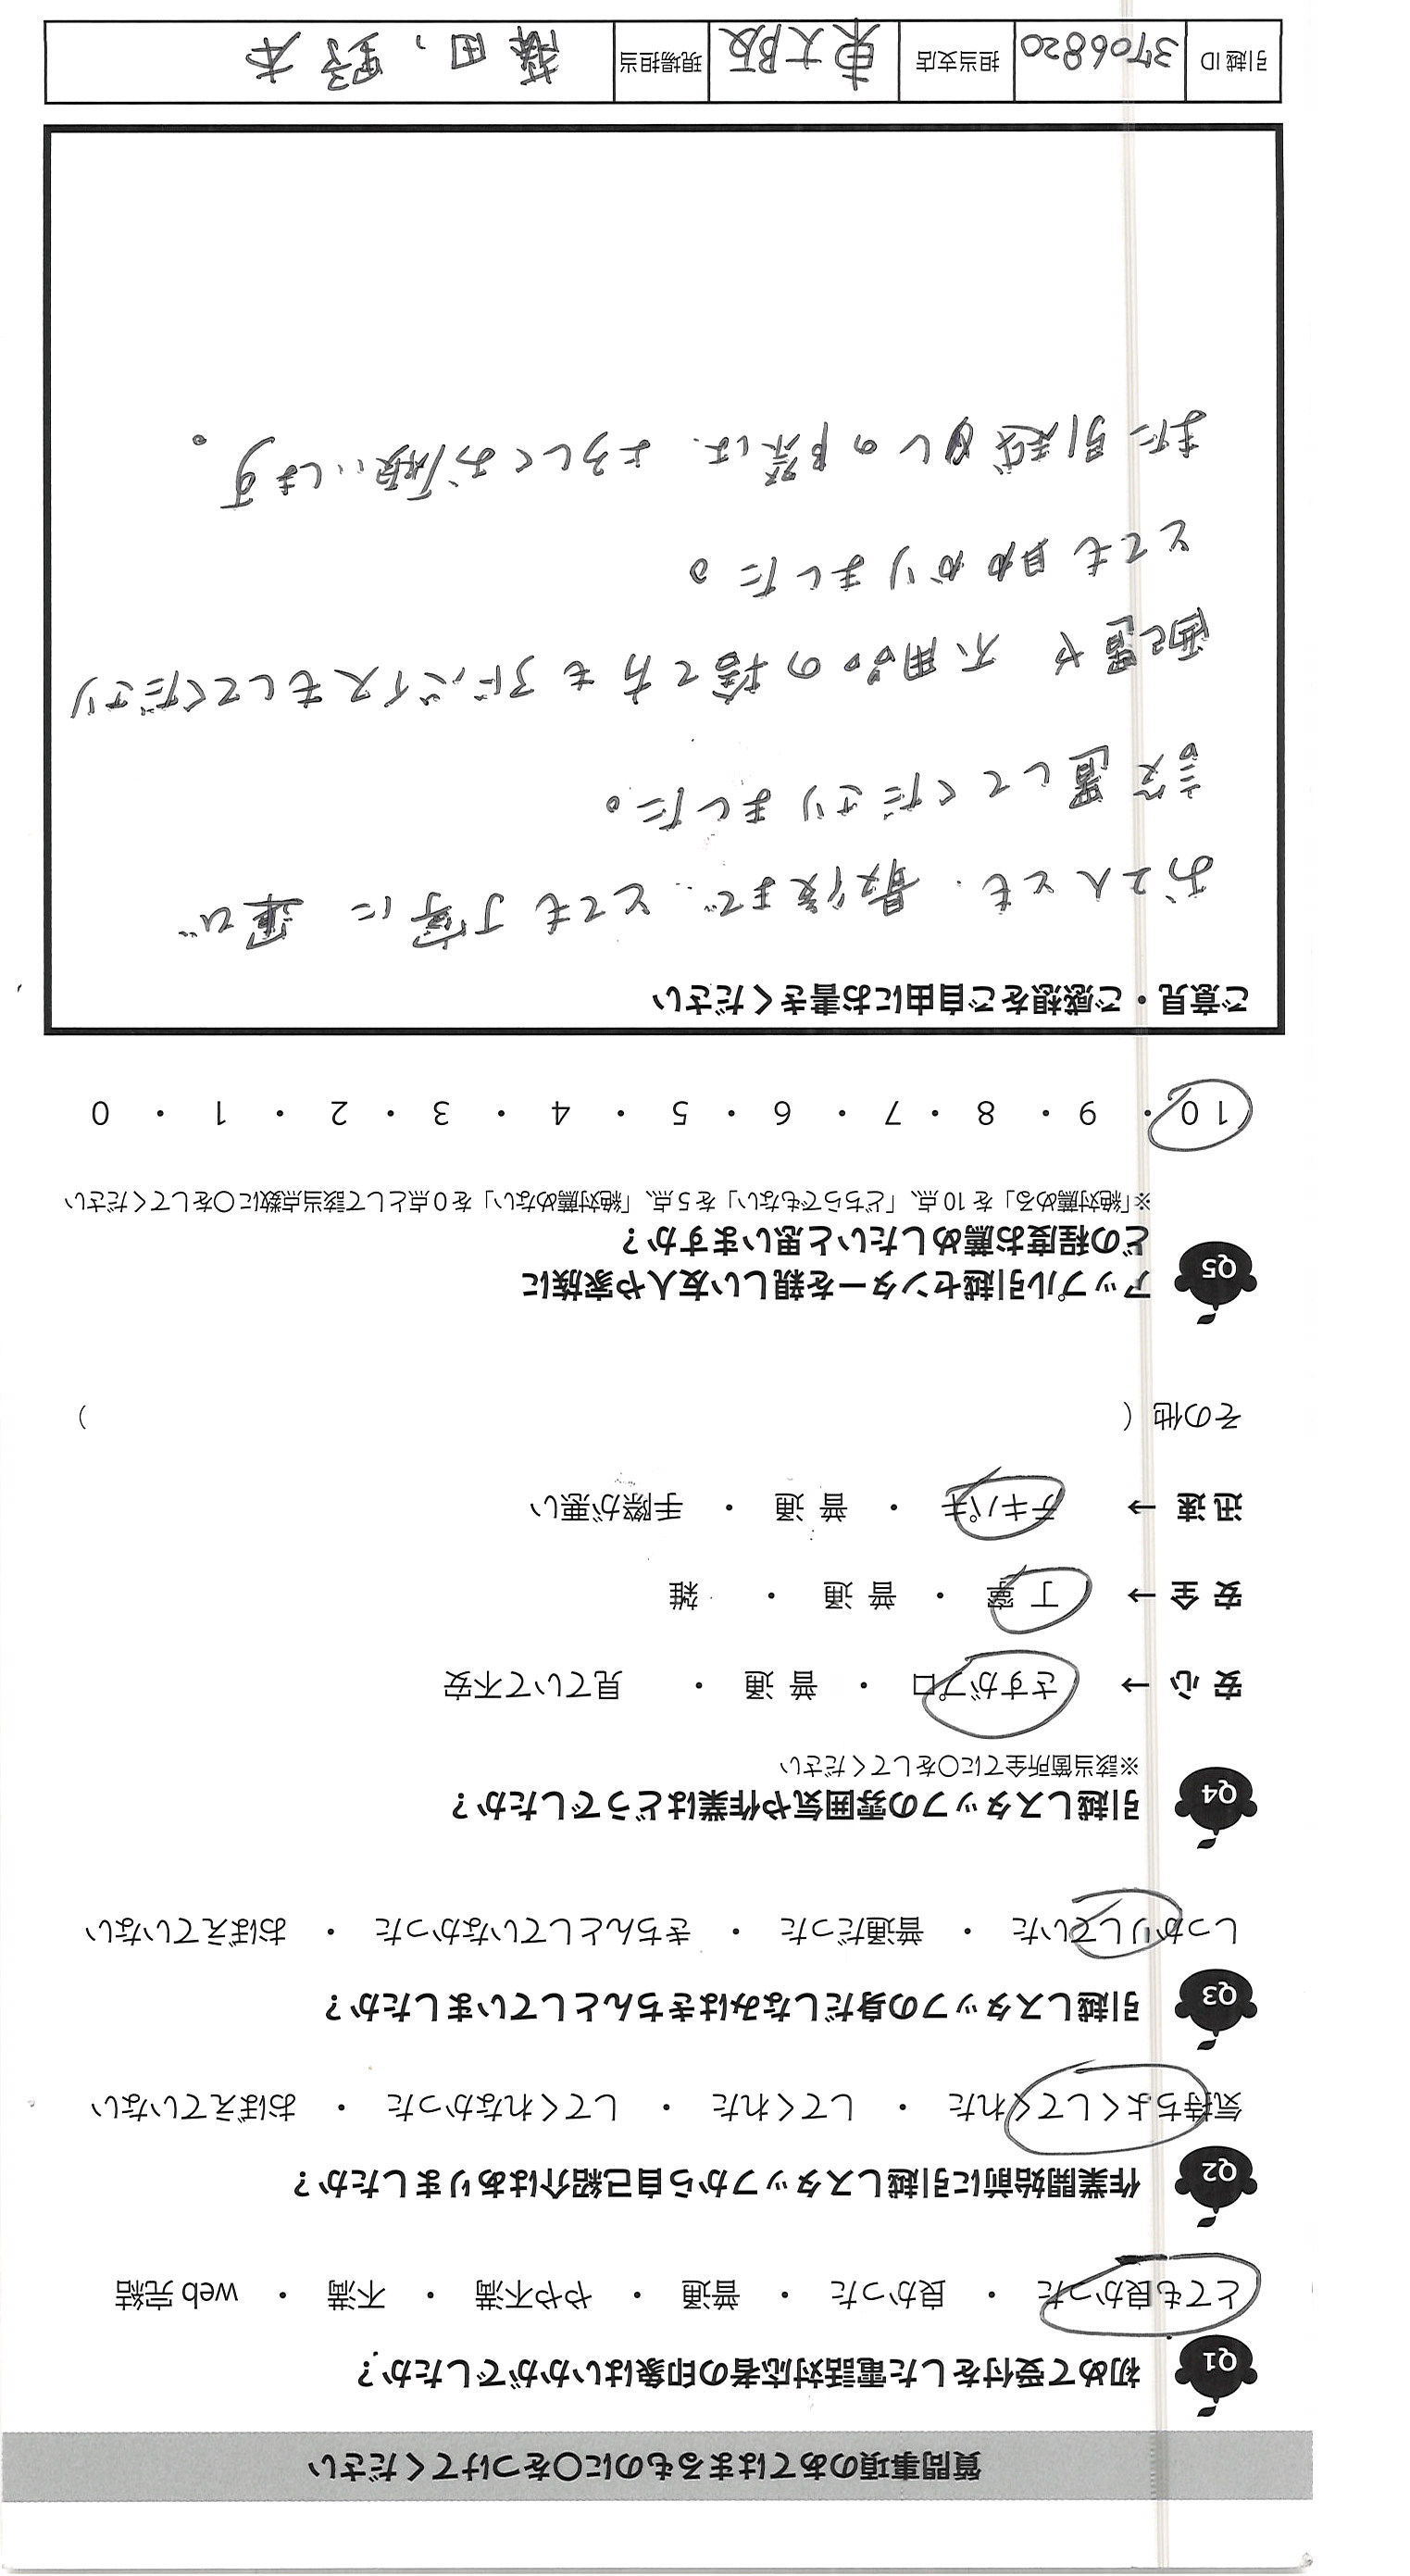 質問事項のあてはまるものに〇をつけてください
Q1 初めて受付をした電話対応者の印象はいかがでしたか？
とても良かった ・ 良かった ・ 普通 ・ やや不満 ・ 不満 ・ web 完結
Q2 作業開始前に引越しスタッフから自己紹介はありましたか？
気持ちよくしてくれた ・ してくれた ・ してくれなかった ・ おぼえていない
Q3 引越しスタッフの身だしなみはきちんとしていましたか？
しっかりしていた ・ 普通だった ・ きちんとしていなかった ・ おぼえていない
Q4 引越しスタッフの雰囲気や作業はどうでしたか？
※該当箇所全てに〇をしてください
安 心 → さすがプロ ・ 普 通 ・ 見ていて不安
安 全 → 丁 寧 ・ 普 通 ・ 雑
迅 速 → テキパキ ・ 普 通 ・ 手際が悪い
その他（ ）
Q5 アップル引越センターを親しい友人や家族に
どの程度お薦めしたいと思いますか？
※「絶対薦める」を 10 点、「どちらでもない」を 5 点、「絶対薦めない」を 0 点として該当点数に〇をしてください
10 ・ 9 ・ 8 ・ 7 ・ 6 ・ 5 ・ 4 ・ 3 ・ 2 ・ 1 ・ 0
ご意見・ご感想をご自由にお書きください
お2人とも、最後まで、とても丁寧に 運び
設置してくださりました。
配置や 不用品の捨て方も アドバイスもしてくださり
とても助かりました。
また引越しの際は、よろしくお願いします。
引越 ID 3706820 担当支店 東大阪 現場担当 藤田，野本